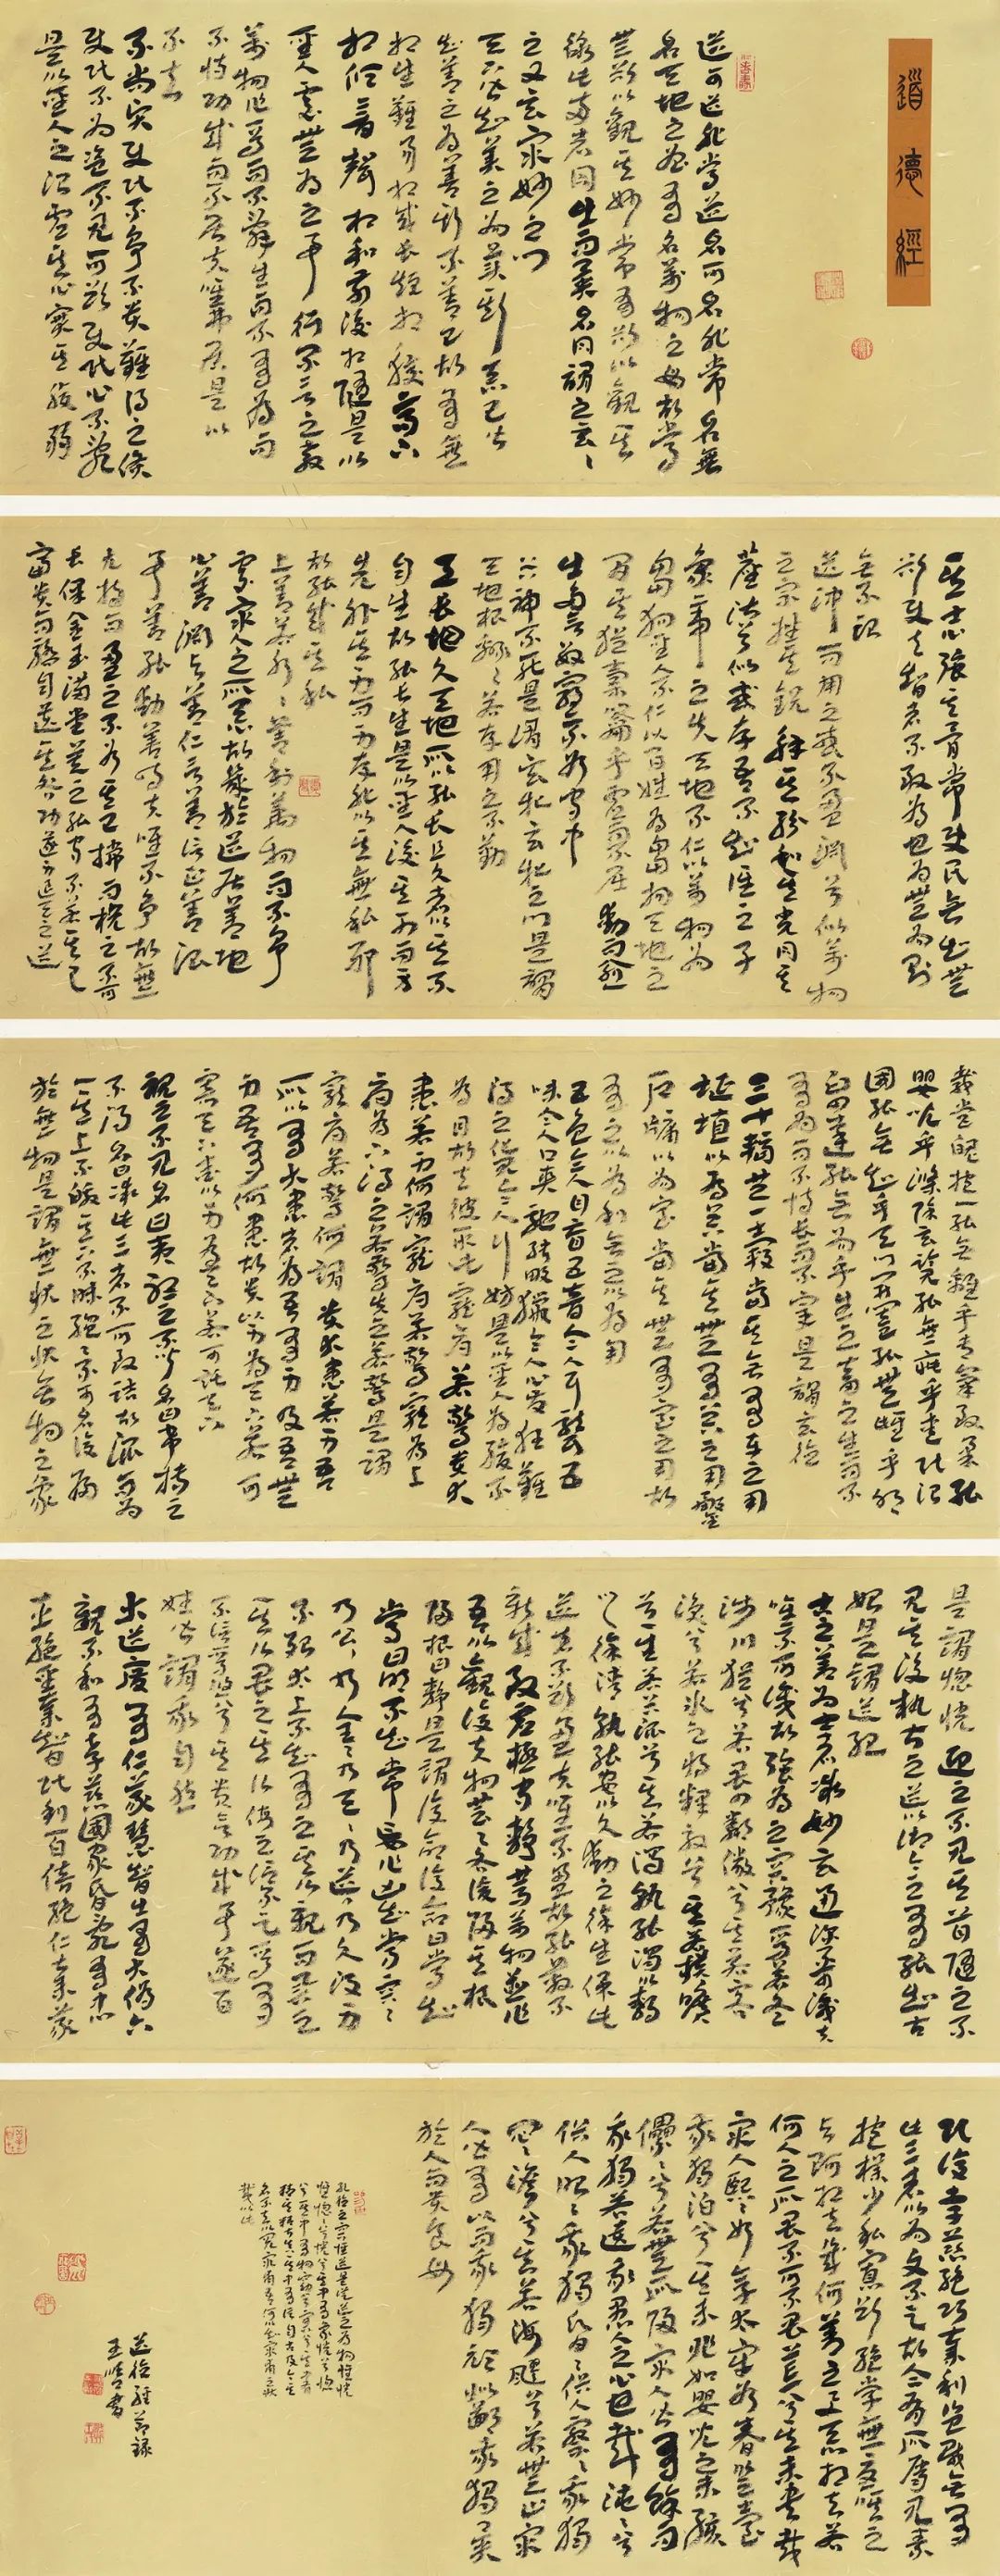 道德經
道可道非常道名可名非常名無
名天地之始有名萬物之母故常
無欲以觀其妙常有欲以觀其
徼此兩者同出而異名同謂之玄〻
之又玄眾妙之門
天下皆知美之為美斯惡已皆
知善之為善斯不善已故有無
相生難易相成長短相較高下
相傾音聲相和前後相隨是以
聖人處無為之事行不言之教
萬物作焉而不辭生而不有為而
不恃功成而不居夫唯弗居是以
不去
不尚賢使民不爭不貴難得之貨
使民不為盜不見可欲使民心不亂
是以聖人之治虛其心實其腹弱
其志心強其骨常使民無知無
欲使夫智者不敢為也為無為則
無不治
道沖而用之或不盈淵兮似萬物
之宗挫其銳解其紛和其光同其
塵湛兮似或存吾不知誰之子
象帝之先天地不仁以萬物為
芻狗聖人不仁以百姓為芻狗天地之
間其猶橐籥乎虛而不屈動而愈
出多言數窮不如守中
谷神不死是謂玄牝玄牝之門是謂
天地根綿〻若存用之不勤
天長地久天地所以能長且久者以其不
自生故能長生是以聖人後其身而身
先外其身而身存非以其無私耶
故能成其私
上善若水〻善利萬物而不爭
處眾人之所惡故幾於道居善地
心善淵與善仁言善信正善治
事善能動善時夫唯不爭故無
尤持而盈之不如其已揣而梲之不可
長保金玉滿堂莫之能守
富貴而驕自遺其咎功遂身退天之道
載營魄抱一能無離乎專氣致柔能
嬰兒乎滌除玄覽能無疵乎愛民治
國能無知乎天門開闔能無雌乎明
白四達能無為乎生之畜之生而不
有為而不恃長而不宰是謂玄德
三十輻共一轂當其無有車之用
埏埴以為器當其無有器之用鑿
戶牖以為室當其無有室之用故
有之以為利無之以為用
五色令人目盲五音令人耳聾五
味令人口爽馳騁畋獵令人心發狂難
得之貨令人行妨是以聖人為腹不
為目故去彼取此寵辱若驚貴大
患若身何謂寵辱若驚寵為上
辱為下得之若驚失之若驚是謂
寵辱若驚何謂貴大患若身吾
所以有大患者為吾有身及吾無
身吾有何患故貴以身為天下若可
寄天下愛以身為天下若可託天下
視之不見名曰夷聽之不聞名曰希搏之
不得名曰微此三者不可致詰故混而為
一其上不皦其下不昧繩〻不可名復歸
於無物是謂無狀之狀無物之象
是謂惚恍迎之不見其首隨之不
見其後執古之道以御今之有能知古
始是謂道紀
古之善為士者微妙玄通深不可識夫
唯不可識故強為之容豫焉若冬
涉川猶兮若畏四鄰儼兮其若客
渙兮若冰之將釋敦兮其若樸曠
兮其若谷混兮其若濁孰能濁以靜
之徐清孰能安以久動之徐生保此
道者不欲盈夫唯不盈故能蔽不
新成致虛極守靜篤萬物並作
吾以觀復夫物芸〻各復歸其根
歸根曰靜是謂復命復命曰常知
常曰明不知常妄作凶知常容〻
乃公〻乃全〻乃天〻乃道〻乃久沒身
不殆太上不知有之其次親而譽之
其次畏之其次侮之信不足焉有
不信焉悠兮其貴言功成事遂百
姓皆謂我自然
大道廢有仁義慧智出有大偽六
親不和有孝慈國家昏亂有忠
臣絕聖棄智民利百倍絕仁棄義
民復孝慈絕巧棄利盜賊無有
此三者以為文不足故令有所屬見素
抱樸少私寡欲絕學無憂唯之
與阿相去幾何善之與惡相去若
何人之所畏不可不畏荒兮其未央哉
眾人熙〻如享太牢如春登臺
我獨泊兮其未兆如嬰兒之未孩
儽〻兮若無所歸眾人皆有餘而
我獨若遺我愚人之心也哉沌〻兮
俗人昭〻我獨昏〻俗人察〻我獨
悶〻澹兮其若海飂兮若無止眾
人皆有以而我獨頑似鄙我獨異
於人而貴食母
孔德之容惟道是從道之為物惟恍
惟惚〻兮恍兮其中有象恍兮惚
道德經節錄